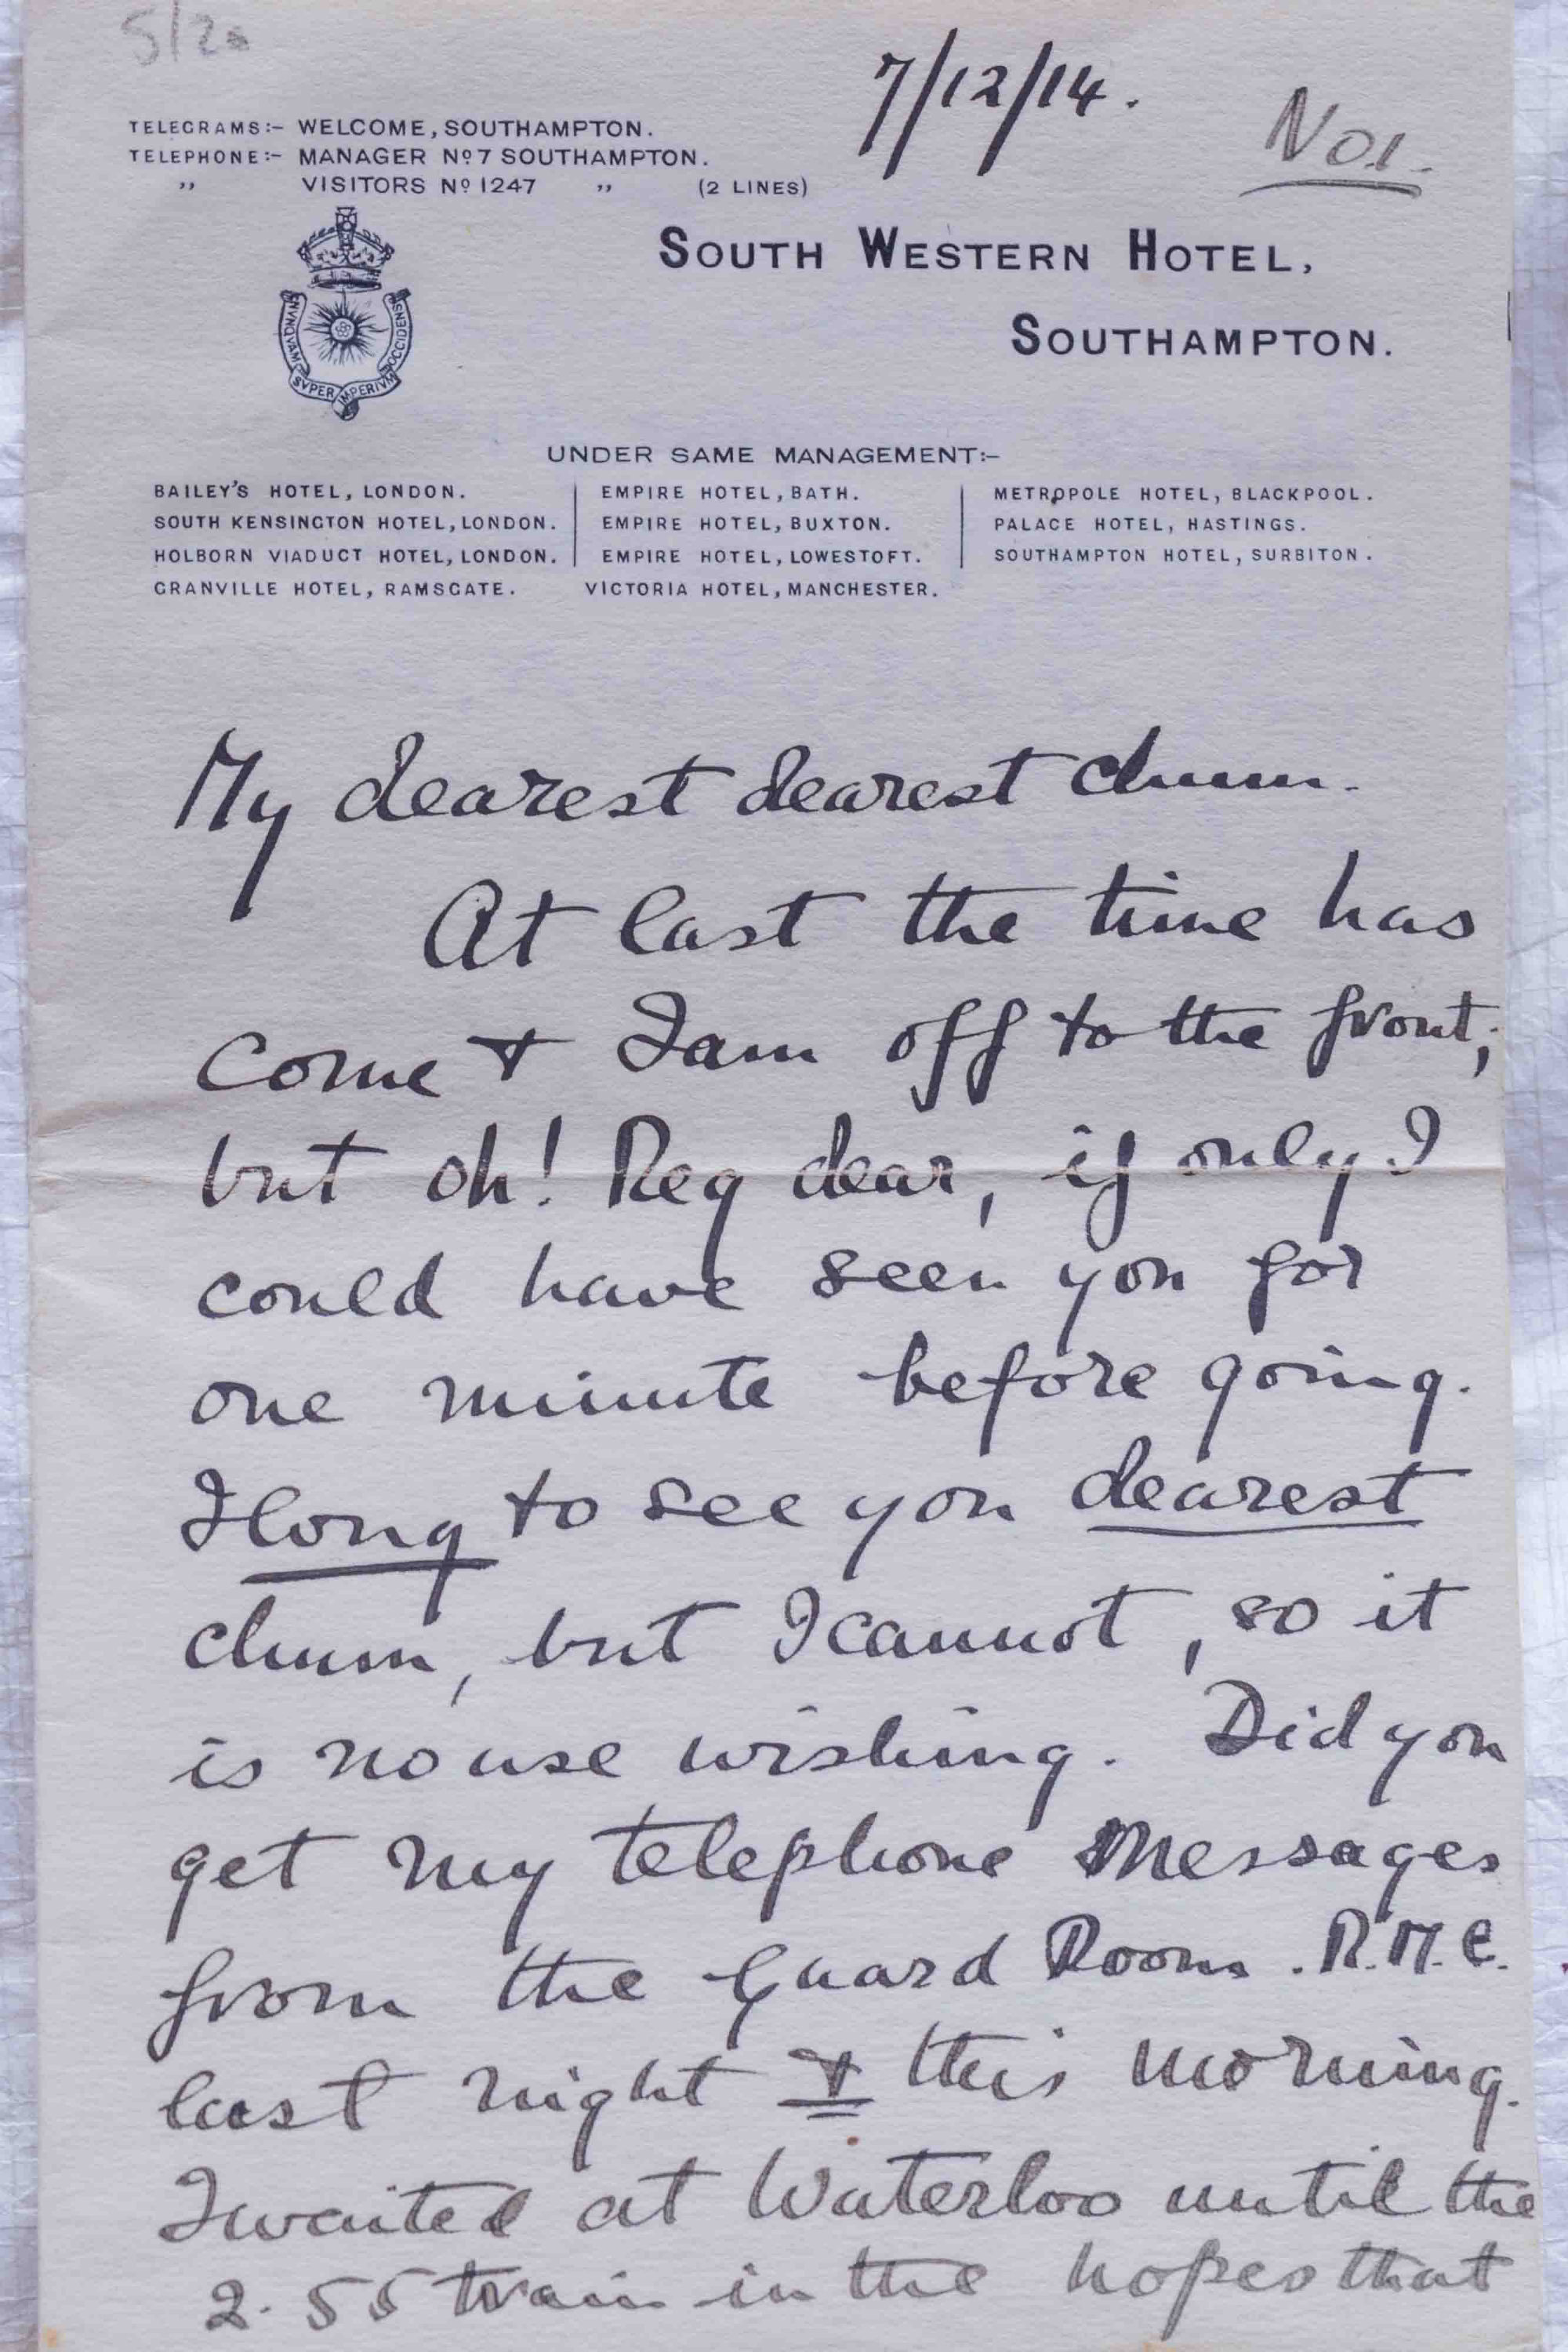 5/20
7/12/14.
No1.
TELEGRAMS:- WELCOME, SOUTHAMPTON.
TELEPHONE:- MANAGER Nº 7 SOUTHAMPTON.
„ VISITORS Nº 1247 „ (2 LINES)
SOUTH WESTERN HOTEL,
SOUTHAMPTON.
NVNQVAM SVPER IMPERIVM OCCIDENS
UNDER SAME MANAGEMENT:-
BAILEY'S HOTEL, LONDON. EMPIRE HOTEL, BATH. METROPOLE HOTEL, BLACKPOOL.
SOUTH KENSINGTON HOTEL, LONDON. EMPIRE HOTEL, BUXTON. PALACE HOTEL, HASTINGS.
HOLBORN VIADUCT HOTEL, LONDON. EMPIRE HOTEL, LOWESTOFT. SOUTHAMPTON HOTEL, SURBITON.
GRANVILLE HOTEL, RAMSGATE. VICTORIA HOTEL, MANCHESTER.
My dearest dearest chum.
At last the time has
come & I am off to the front;
but oh! Reg dear, if only I
could have seen you for
one minute before going.
I long to see you dearest
chum, but I cannot, so it
is no use wishing. Did you
get my telephone messages
from the Guard Room. R.M.C.
last night & this morning.
I waited at Waterloo until the
2.55 train in the hopes that